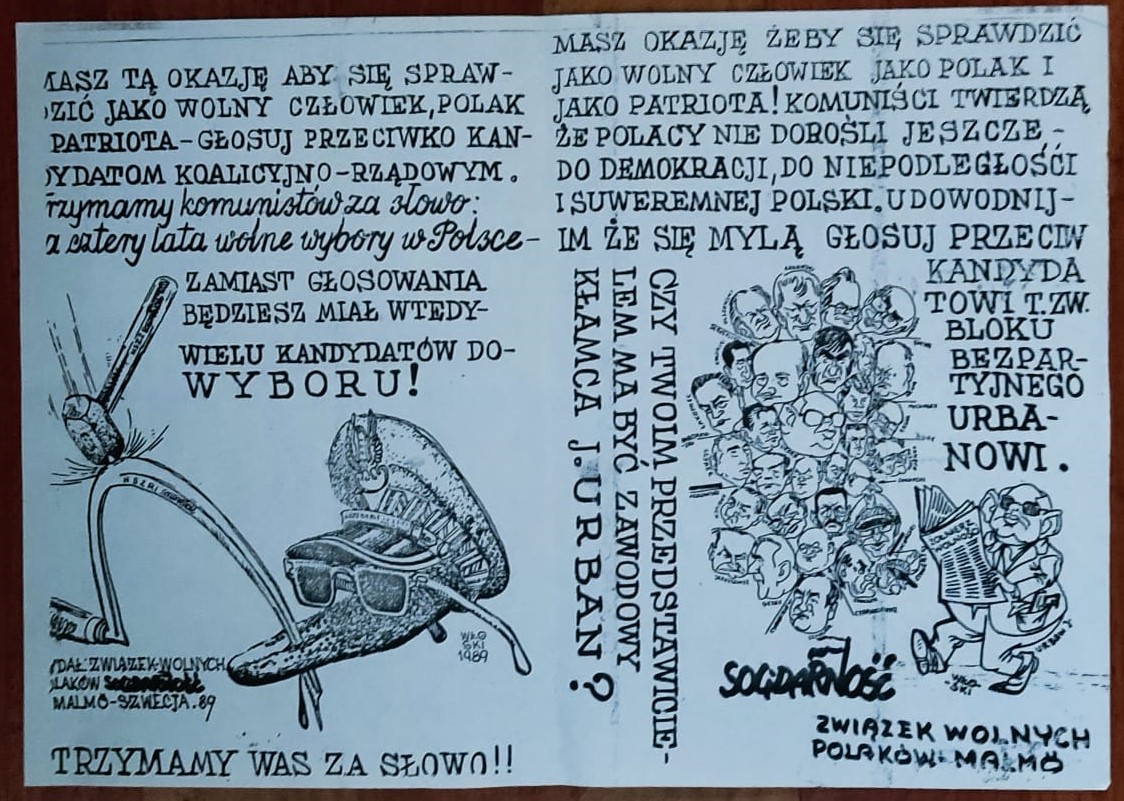 MASZ TĄ OKAZJĘ ABY SIĘ SPRAW-
DZIĆ JAKO WOLNY CZŁOWIEK, POLAK
PATRIOTA-GŁOSUJ PRZECIWKO KAN-
DYDATOM KOALICYJNO-RZĄDOWYM.
rzymamy komunistów za słowo:
a cztery lata wolne wybory w Polsce-
ZAMIAST GŁOSOWANIA
BĘDZIESZ MIAŁ WTEDY-
WIELU KANDYDATÓW DO-
WYBORU!
WŁO
SKI
1989
DAŁ ZWIĄZEK WOLNYCH
LAKÓW SOLIDARNOŚĆ
MALMÖ-SZWECJA.89
TRZYMAMY WAS ZA SŁOWO!!
MASZ OKAZJĘ ŻEBY SIĘ SPRAWDZIĆ
JAKO WOLNY CZŁOWIEK JAKO POLAK I
JAKO PATRIOTA! KOMUNIŚCI TWIERDZĄ
ŻE POLACY NIE DOROŚLI JESZCZE,-
DO DEMOKRACJI, DO NIEPODLEGŁOŚCI
I SUWEREMNEJ POLSKI. UDOWODNIJ-
IM ŻE SIĘ MYLĄ GŁOSUJ PRZECIW
KANDYDA
TOWI T.ZW.
BLOKU
BEZPAR-
TYJNEGO
URBA-
NOWI.
CZY TWOIM PRZEDSTAWICIE-
LEM MA BYĆ ZAWODOWY
KŁAMCA J. URBAN?
ŻOŁNIERZ
WOLNOŚCI
URBAN J.
WŁO
SKI
SOLIDARNOŚĆ
ZWIĄZEK WOLNYCH
POLAKÓW-MALMÖ